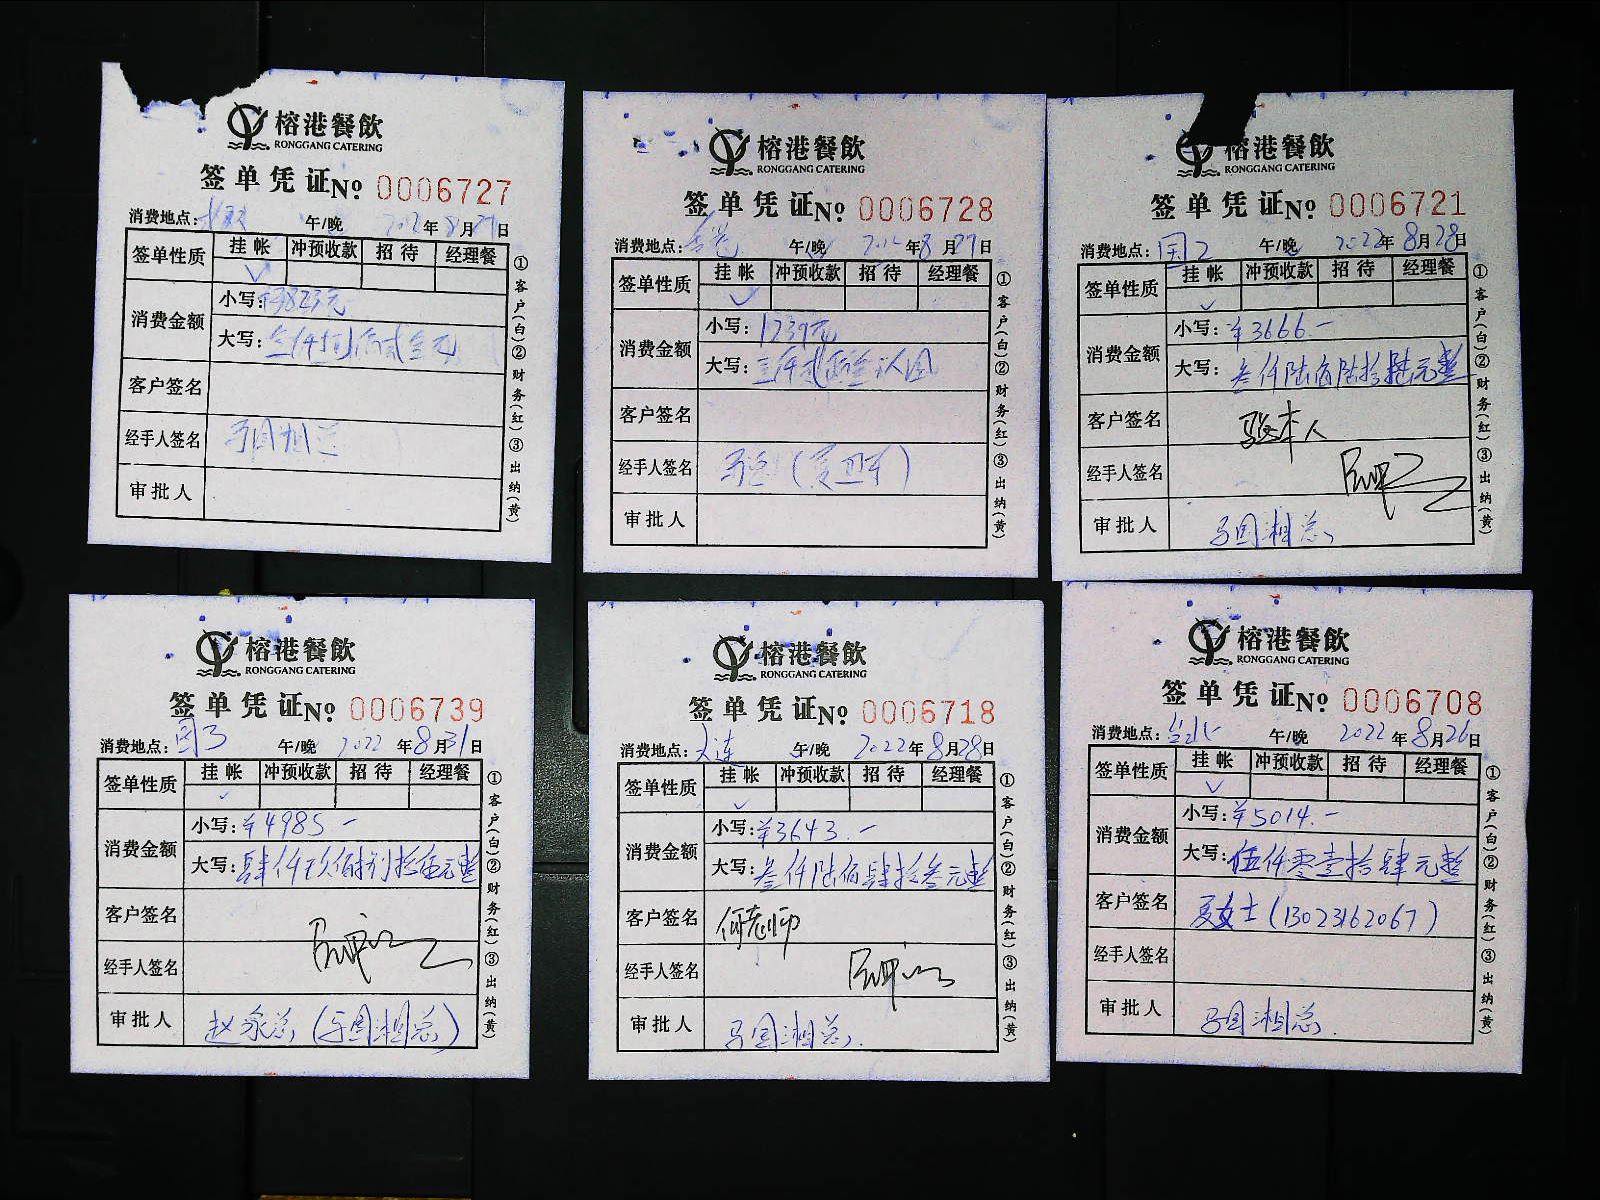 榕港餐飲
RONGGANG CATERING
签单凭证 № 0006727
消费地点: 午/晚 年8月29日
签单性质 挂帐 冲预收款 招待 经理餐
✓
消费金额 小写: 元
大写:
客户签名
经手人签名
审批人
①客户(白)②财务(红)③出纳(黄)
榕港餐飲
RONGGANG CATERING
签单凭证 № 0006728
消费地点: 午/晚 年8月29日
签单性质 挂帐 冲预收款 招待 经理餐
✓
消费金额 小写: 元
大写:
客户签名
经手人签名
审批人
①客户(白)②财务(红)③出纳(黄)
榕港餐飲
RONGGANG CATERING
签单凭证 № 0006721
消费地点: 国2 午/晚 2022年8月28日
签单性质 挂帐 冲预收款 招待 经理餐
✓
消费金额 小写: ¥3666.—
大写: 叁仟陆佰陆拾陆元整
客户签名 本人
经手人签名
审批人 马国湘总
①客户(白)②财务(红)③出纳(黄)
榕港餐飲
RONGGANG CATERING
签单凭证 № 0006739
消费地点: 国3 午/晚 2022年8月31日
签单性质 挂帐 冲预收款 招待 经理餐
✓
消费金额 小写: ¥4985—
大写: 肆仟玖佰捌拾伍元整
客户签名
经手人签名
审批人 赵总(马国湘总)
①客户(白)②财务(红)③出纳(黄)
榕港餐飲
RONGGANG CATERING
签单凭证 № 0006718
消费地点: 大连 午/晚 2022年8月28日
签单性质 挂帐 冲预收款 招待 经理餐
✓
消费金额 小写: ¥3643.—
大写: 叁仟陆佰肆拾叁元整
客户签名 何老师
经手人签名
审批人 马国湘总
①客户(白)②财务(红)③出纳(黄)
榕港餐飲
RONGGANG CATERING
签单凭证 № 0006708
消费地点: 午/晚 2022年8月26日
签单性质 挂帐 冲预收款 招待 经理餐
✓
消费金额 小写: ¥5014.—
大写: 伍仟零壹拾肆元整
客户签名 夏女士(13023162067)
经手人签名
审批人 马国湘总
①客户(白)②财务(红)③出纳(黄)